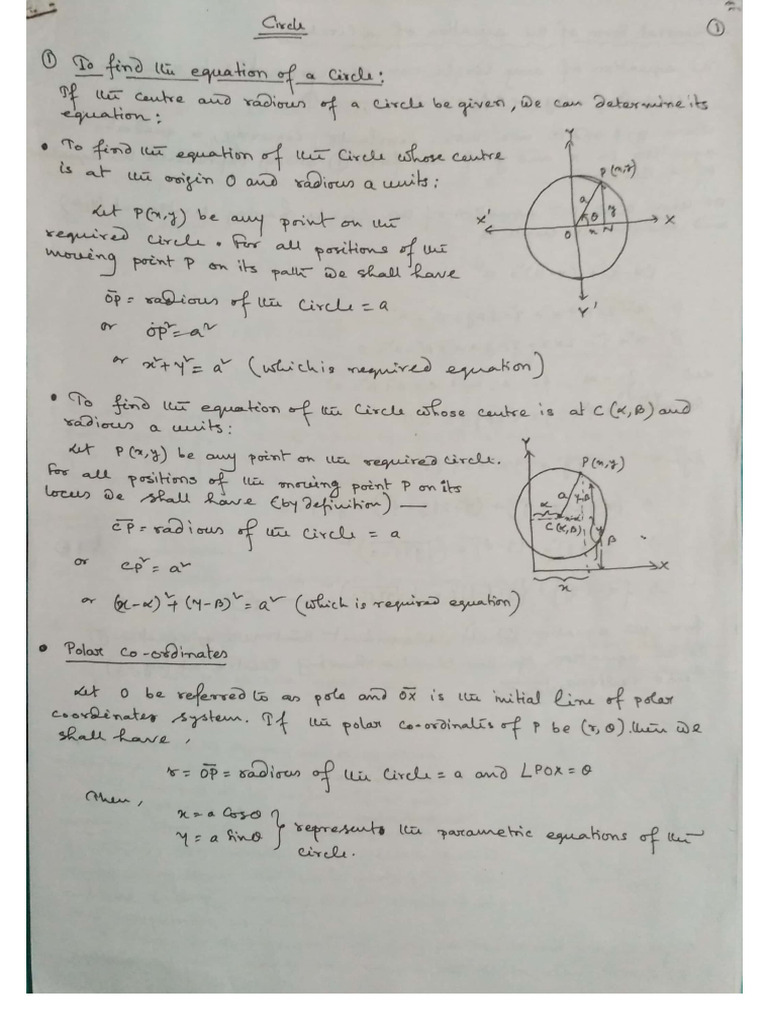 Circle
①
① To find the equation of a Circle:
If the centre and radious of a circle be given, we can determine its
equation:
• To find the equation of the Circle whose centre
is at the origin O and radious a units:
Let P(x,y) be any point on the
required circle. For all positions of the
moving point P on its path we shall have
O̅P̅ = radious of the Circle = a
or OP² = a²
or x²+y² = a² (which is required equation)
Y
P(x,y)
a
y
X'
θ
X
O
x
N
Y'
• To find the equation of the Circle whose centre is at C(α,β) and
radious a units:
Let P(x,y) be any point on the required circle.
For all positions of the moving point P on its
locus we shall have (by definition) —
C̅P̅ = radious of the circle = a
or CP² = a²
or (x-α)²+(y-β)² = a² (which is required equation)
Y
P(x,y)
a
y-β
α
x-α
C(α,β)
y
β
X
x
• Polar Co-ordinates
Let O be referred to as pole and O̅X̅ is the initial line of polar
coordinates system. If the polar co-ordinates of P be (r,θ). then we
shall have,
r = O̅P̅ = radious of the Circle = a and ∠POX = θ
Then,
x = a Cosθ
y = a Sinθ } represents the parametric equations of the
circle.